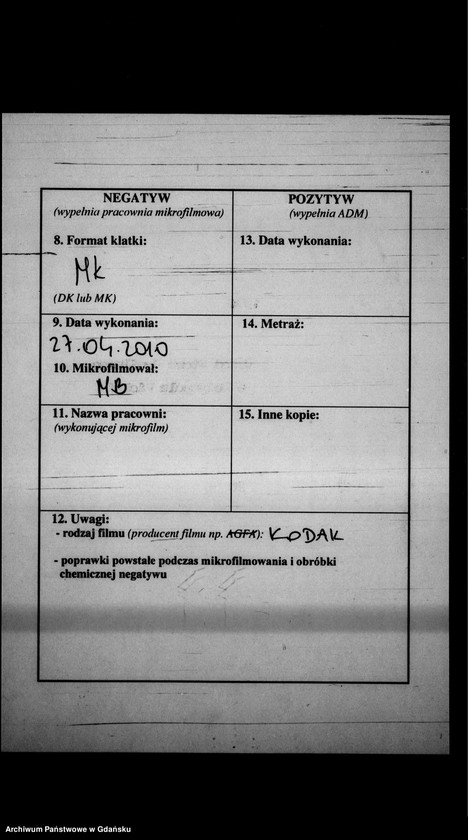 NEGATYW
(wypełnia pracownia mikrofilmowa)
8. Format klatki:
Mk
(DK lub MK)
9. Data wykonania:
27.04.2010
10. Mikrofilmował:
MB
11. Nazwa pracowni:
(wykonującej mikrofilm)
POZYTYW
(wypełnia ADM)
13. Data wykonania:
14. Metraż:
15. Inne kopie:
12. Uwagi:
- rodzaj filmu (producent filmu np. AGFA): KODAK
- poprawki powstałe podczas mikrofilmowania i obróbki
chemicznej negatywu
Archiwum Państwowe w Gdańsku